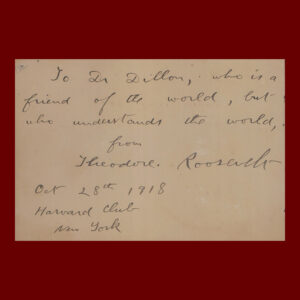 To Dr Dillon, who is a
friend of the world, but
who understands the world,
from
Theodore. Roosevelt
Oct 28th 1918
Harvard Club
New York